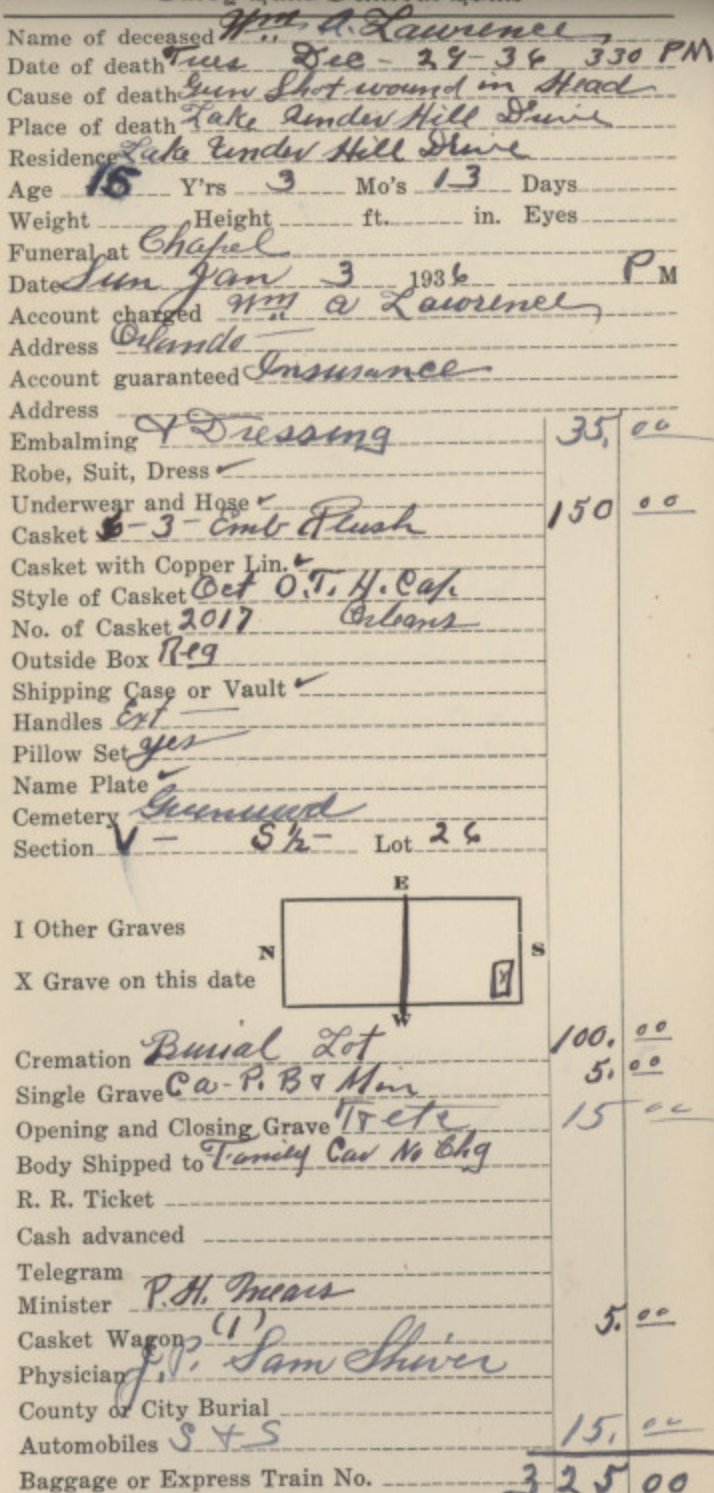 Name of deceased Wm. A. Lawrence
Date of death Tues Dec - 29 - 36 330 PM
Cause of death Gun Shot wound in Head
Place of death Lake Under Hill Drive
Residence Lake Under Hill Drive
Age 15 Y'rs 3 Mo's 13 Days
Weight Height ft. in. Eyes
Funeral at Chapel
Date Sun Jan 3 1936 P M
Account charged Wm A Lawrence
Address Orlando
Account guaranteed Insurance
Address
Embalming & Dressing 35.00
Robe, Suit, Dress ✓
Underwear and Hose ✓
Casket 6-3- Emb Plush 150 00
Casket with Copper Lin. ✓
Style of Casket Oct O.T. H. Cap.
No. of Casket 2017 Orleans
Outside Box Reg
Shipping Case or Vault ✓
Handles Ext
Pillow Set yes
Name Plate ✓
Cemetery Greenwood
Section V - S ½ - Lot 26
E
I Other Graves
N S
X Grave on this date X
W
Cremation Burial Lot 100.00
Single Grave Ca - P. B & Min 5.00
Opening and Closing Grave T & etc 15 00
Body Shipped to Family Car No Chg
R. R. Ticket
Cash advanced
Telegram
Minister P. H. Mears
Casket Wagon (1) 5.00
Physician J. P. Sam Shiver
County or City Burial
Automobiles S & S 15.00
Baggage or Express Train No. 325 00